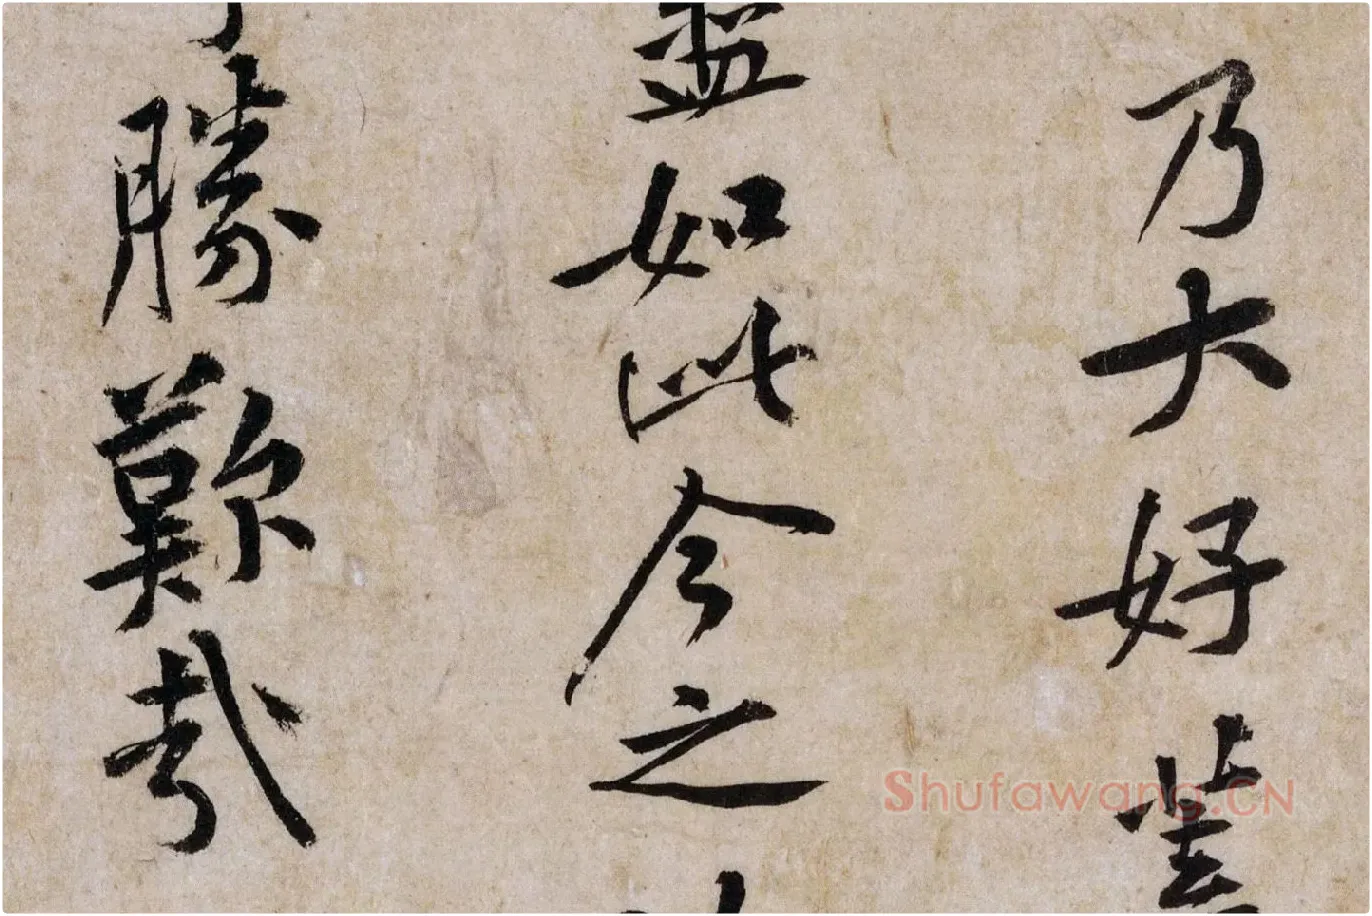 乃大好
如此今之
勝歎哉
Shufawang.CN